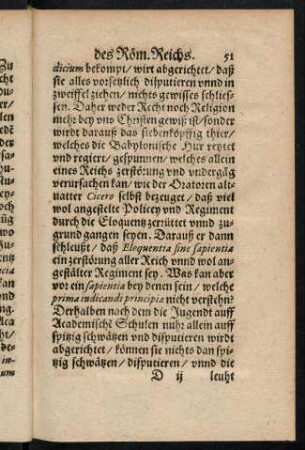 des Röm. Reichs. 51
dicium bekompt/ wirt abgerichtet/ daß
sie alles vorsetzlich disputieren vnnd in
zweiffel ziehen/ nichts gewisses schlies-
sen. Daher weder Recht noch Religion
mehr bey vns Christen gewiß ist/ sonder
wirdt darauß das siebenköpffig thier/
welches die Babylonische Hur reytet
vnd regiert/ gespunnen/ welches allein
eines Reichs zerstörung vnd vndergāg
verursachen kan/ wie der Oratoren alt-
uatter Cicero selbst bezeuget/ daß viel
wol angestelte Policey vnd Regiment
durch die Eloquentz zerrüttet vnnd zu-
grund gangen seyen. Darauß er dann
schleußt/ daß Eloquentia sine sapientia
ein zerstörung aller Reich vnnd wol an-
gestälter Regiment sey. Was kan aber
vor ein sapientia bey denen sein/ welche
prima iudicandi principia nicht verstehn?
Derhalben nach dem die Jugendt auff
Academischē Schulen nuhr allein auff
spitzig schwätzen vnd disputieren wirdt
abgerichtet/ können sie nichts dan spi-
tzig schwätzen/ disputieren/ vnnd die
D ij leuht